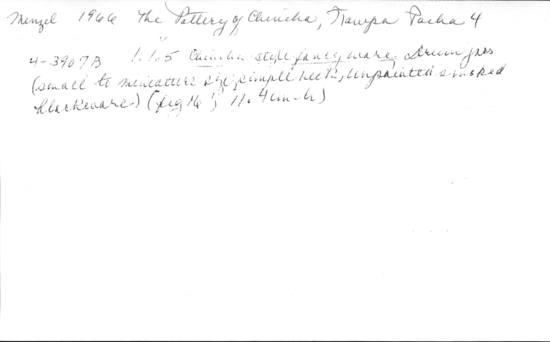 Menzel 1966 The Pottery of Chincha, Ñawpa Pacha 4
4-3907B 1.1.5 Chincha style fancy ware. Drum jars
(small to miniature size; simple necks, unpainted smoked
blackware) (fig 16; 11.4cm-h)